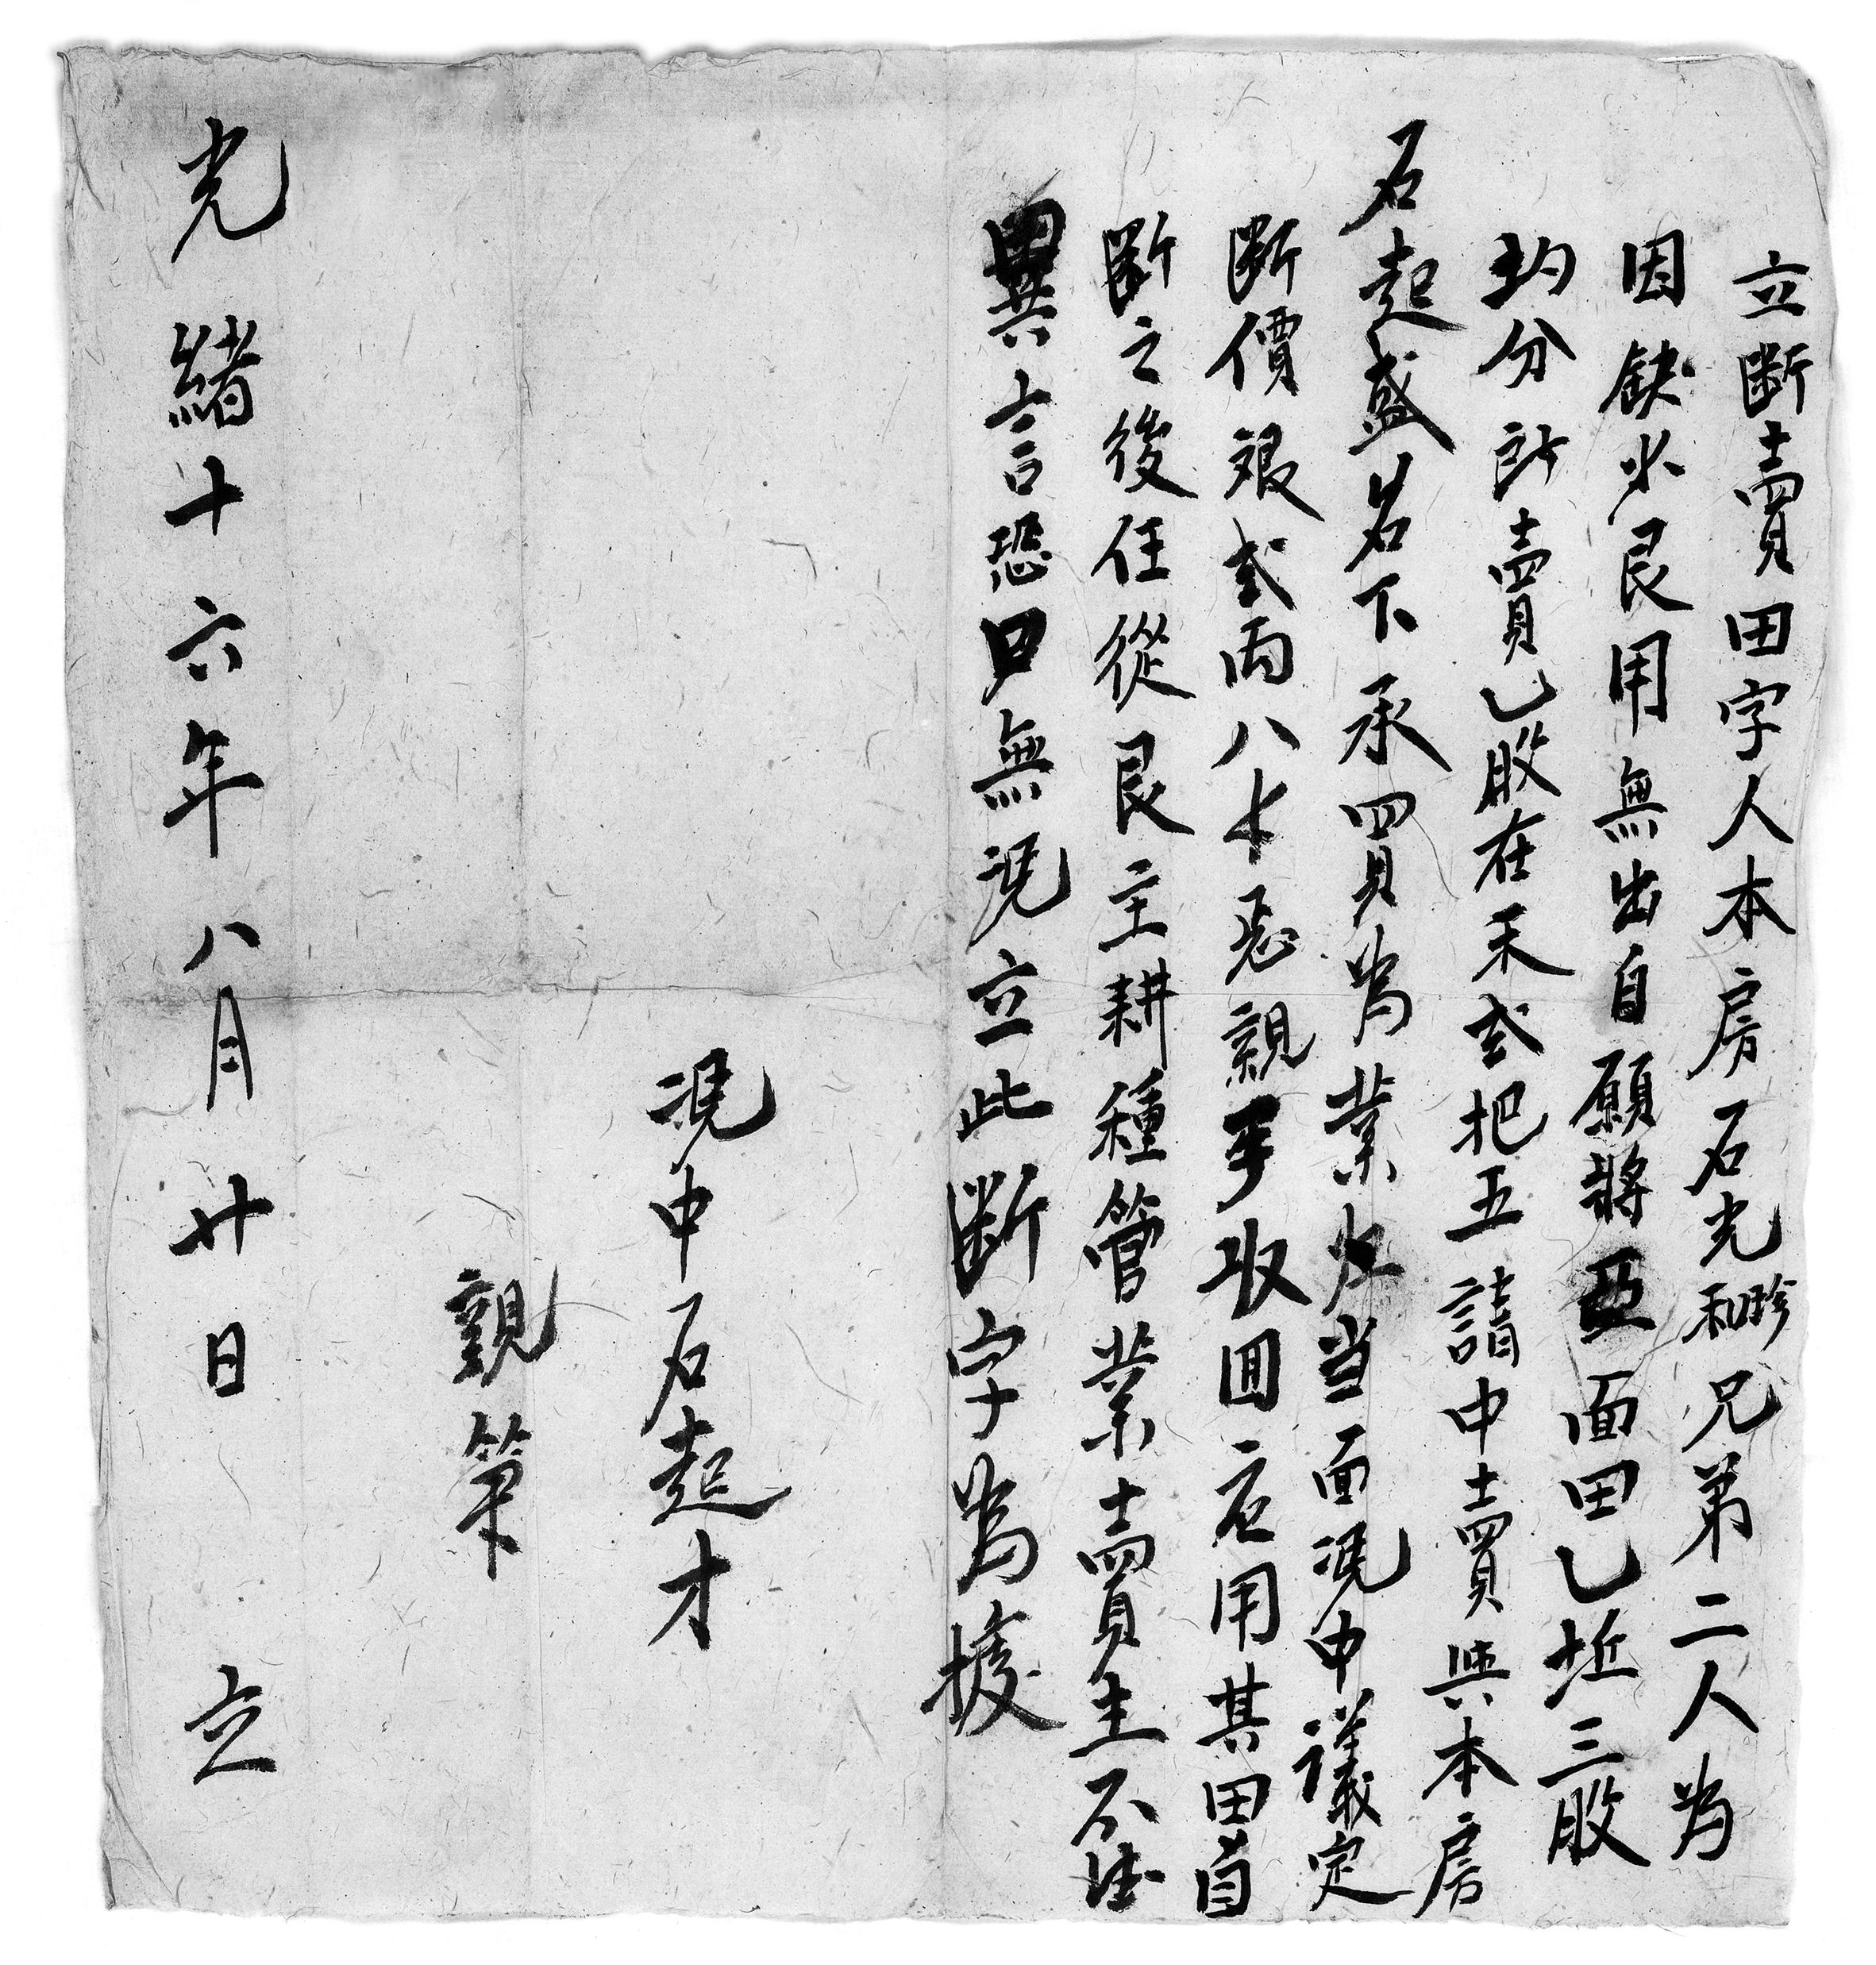 立断賣田字人本房石光和珍兄弟二人為
因缺少艮用無出自願將 面田乙坵三股
均分所賣乙股在禾弍把五請中賣與本房
石起盛名下承買為業 当面凭中議定
断價艮弍両八 親手收囬应用其田自
断之後任從艮主耕種管業賣主不得
異言恐口無凭立此断字為據
凭中石起才
親筆
光緒十六年八月廿日 立